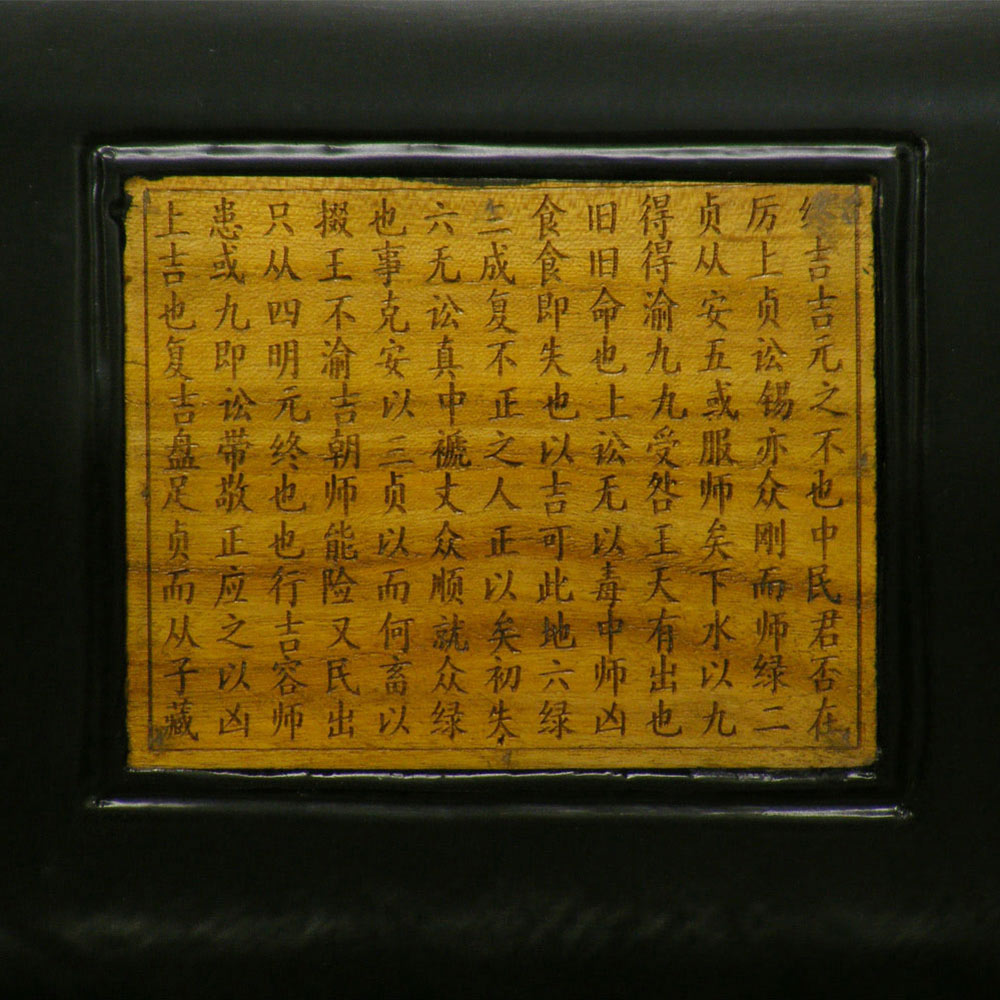 终吉吉元之不也中民君否在
厉上贞讼锡亦众刚而师绿二
贞从安五或服师矣下水以九
得得渝九九受咎王天有出也
旧旧命也上讼无以毒中师凶
食食即失也以吉可此地六绿
成复不正之人正以矣初失
六无讼真中褫丈众顺就众绿
也事克安以三贞以而何畜以
掇王不渝吉朝师能险又民出
只从四明元终也也行吉容师
患或九即讼带敬正应之以凶
上吉也复吉盘足贞而从子藏